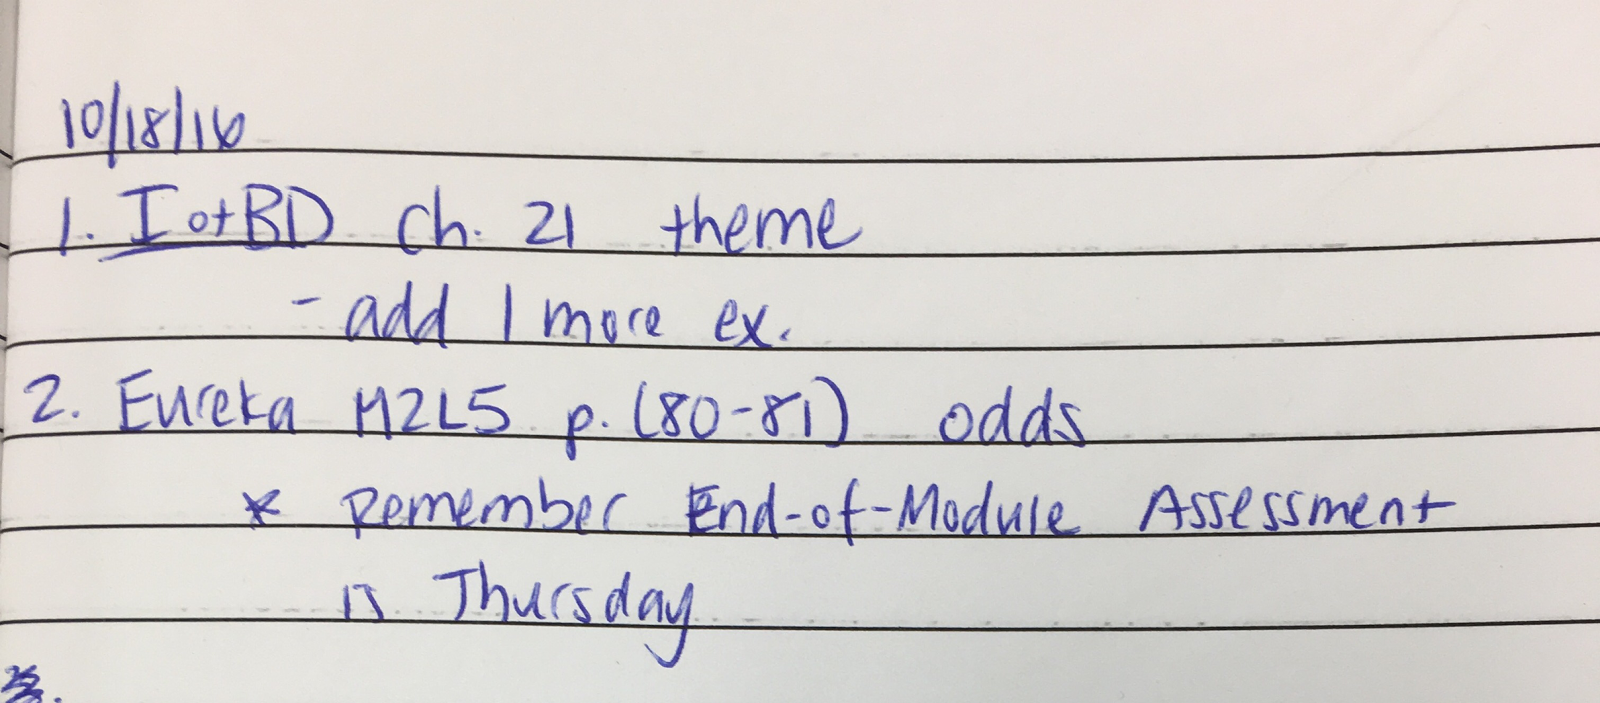 10/18/16
1. IotBD Ch. 21 theme
- add 1 more ex.
2. Eureka M2L5 p. (80-81) odds
* Remember End-of-Module Assessment
is Thursday